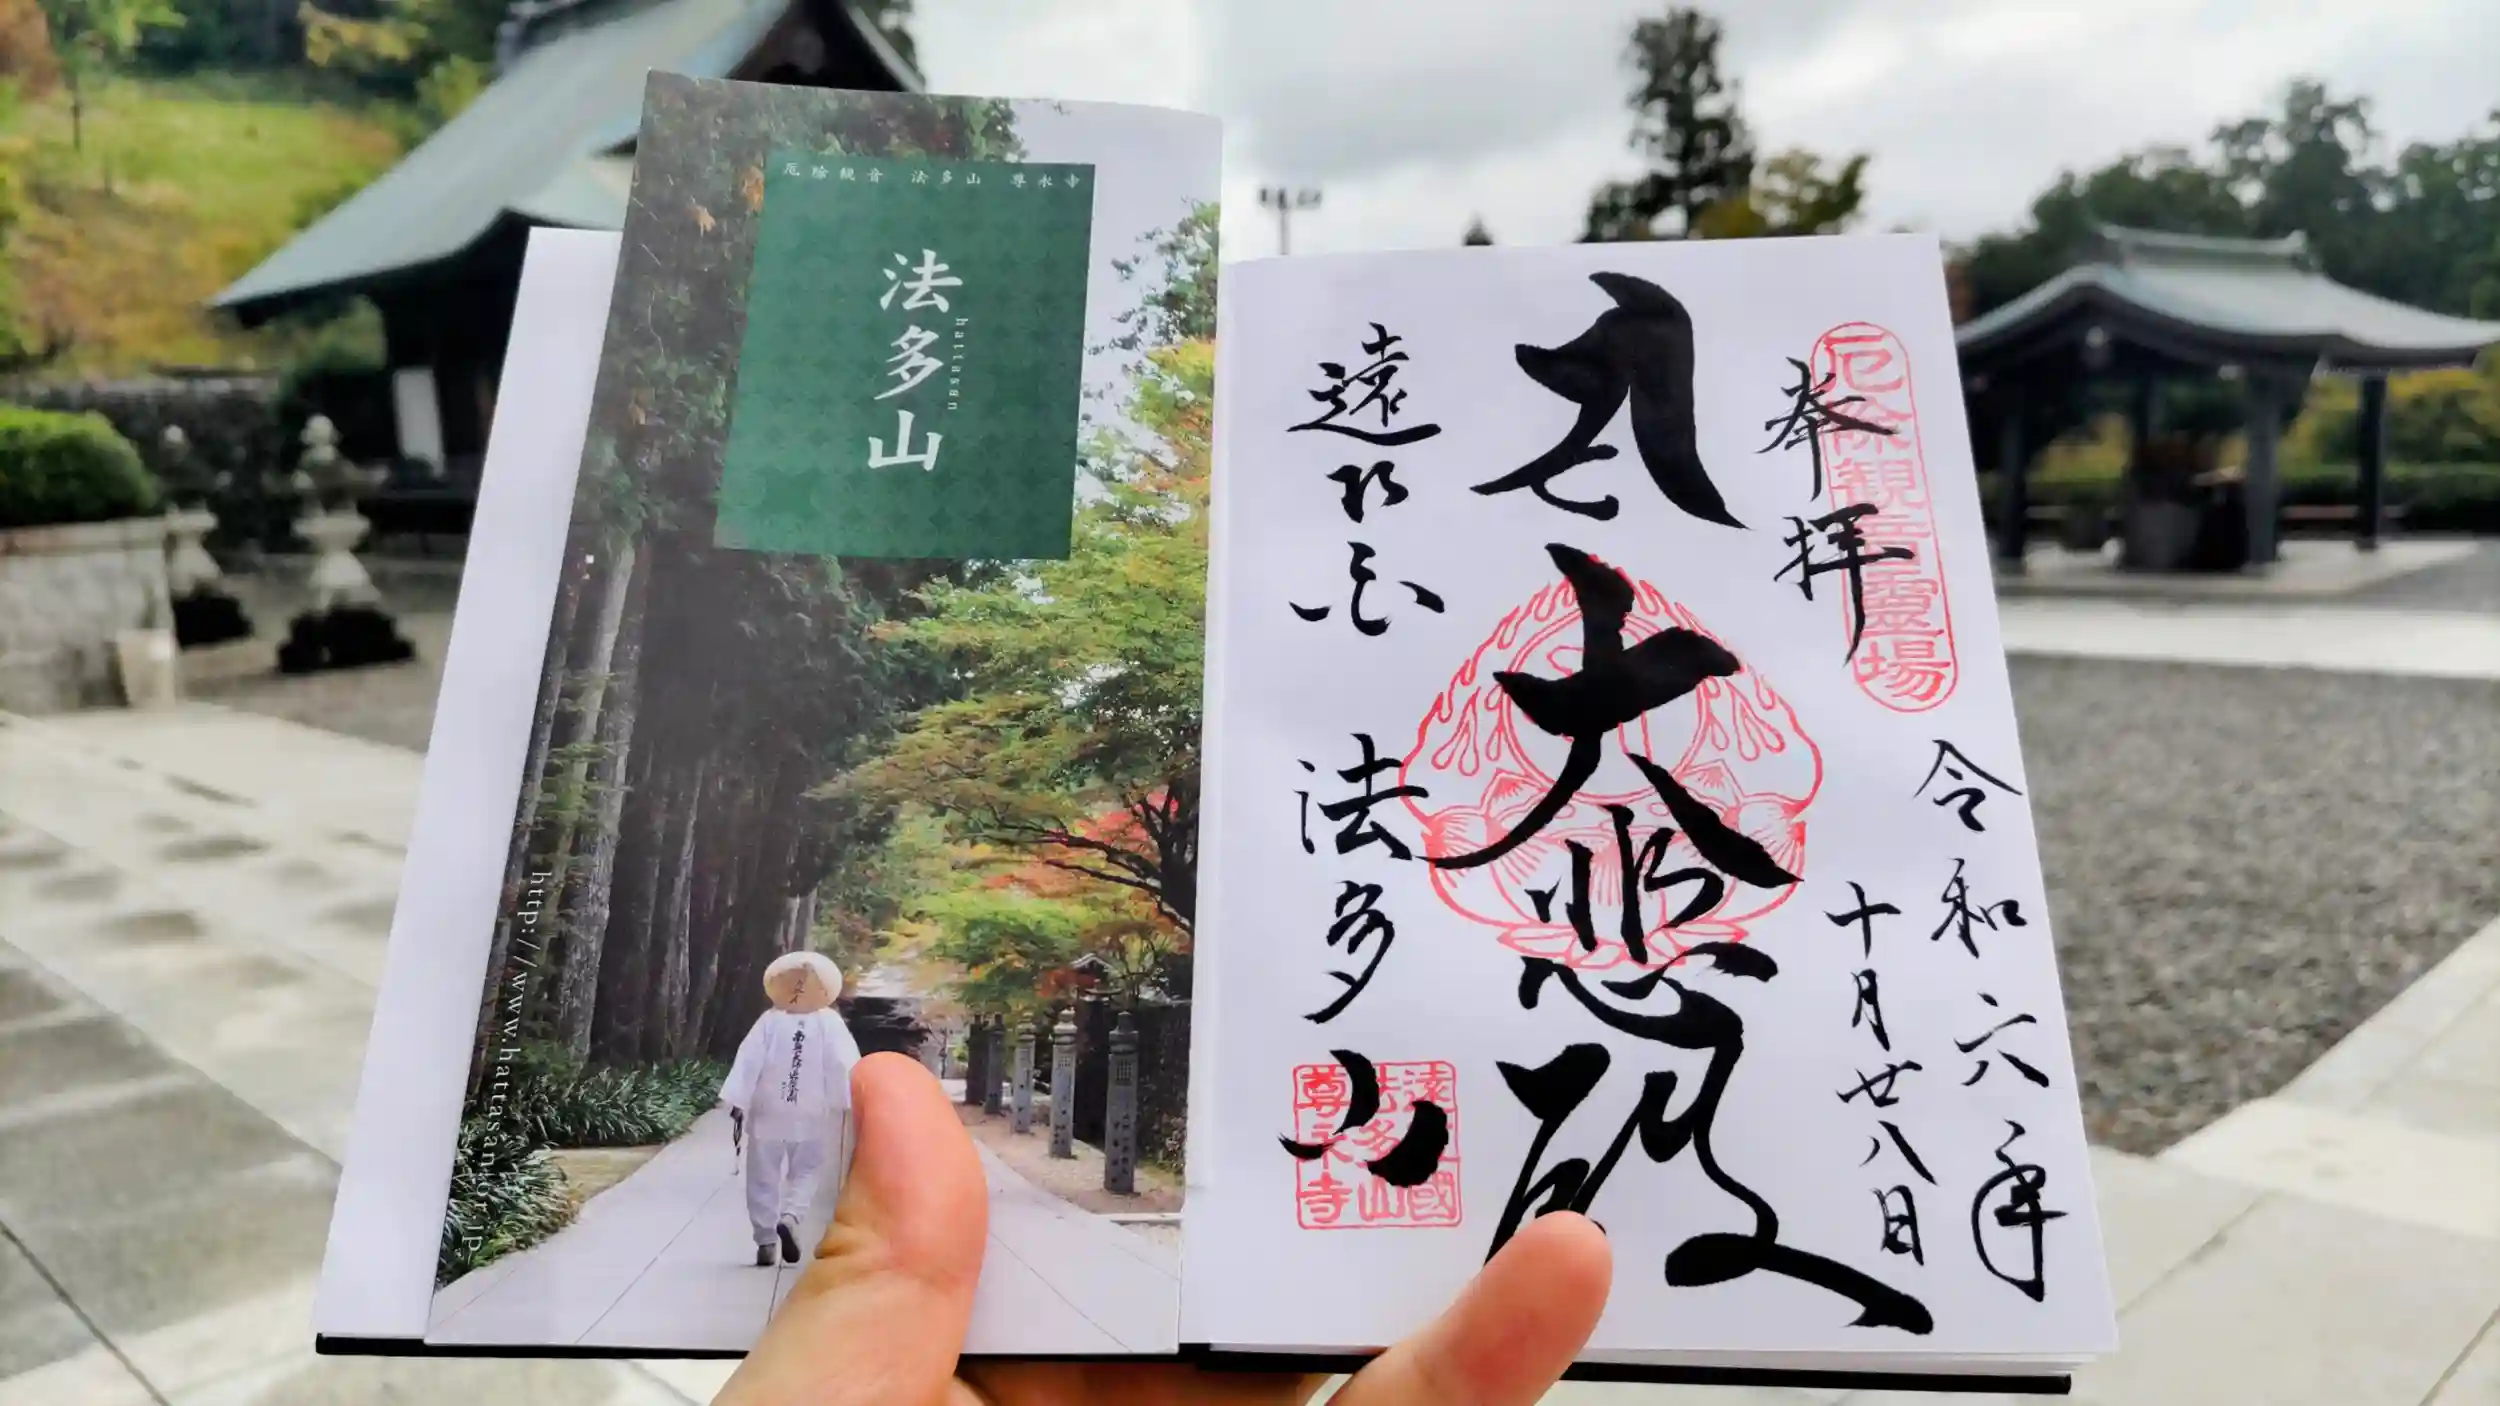 厄除観音 法多山 尊永寺
法多山
hattasan
http://www.hattasan.or.jp
厄除観音霊場
奉拝
令和六年
十月廿八日
大悲殿
遠州
法多山
遠江國
法多山
尊永寺